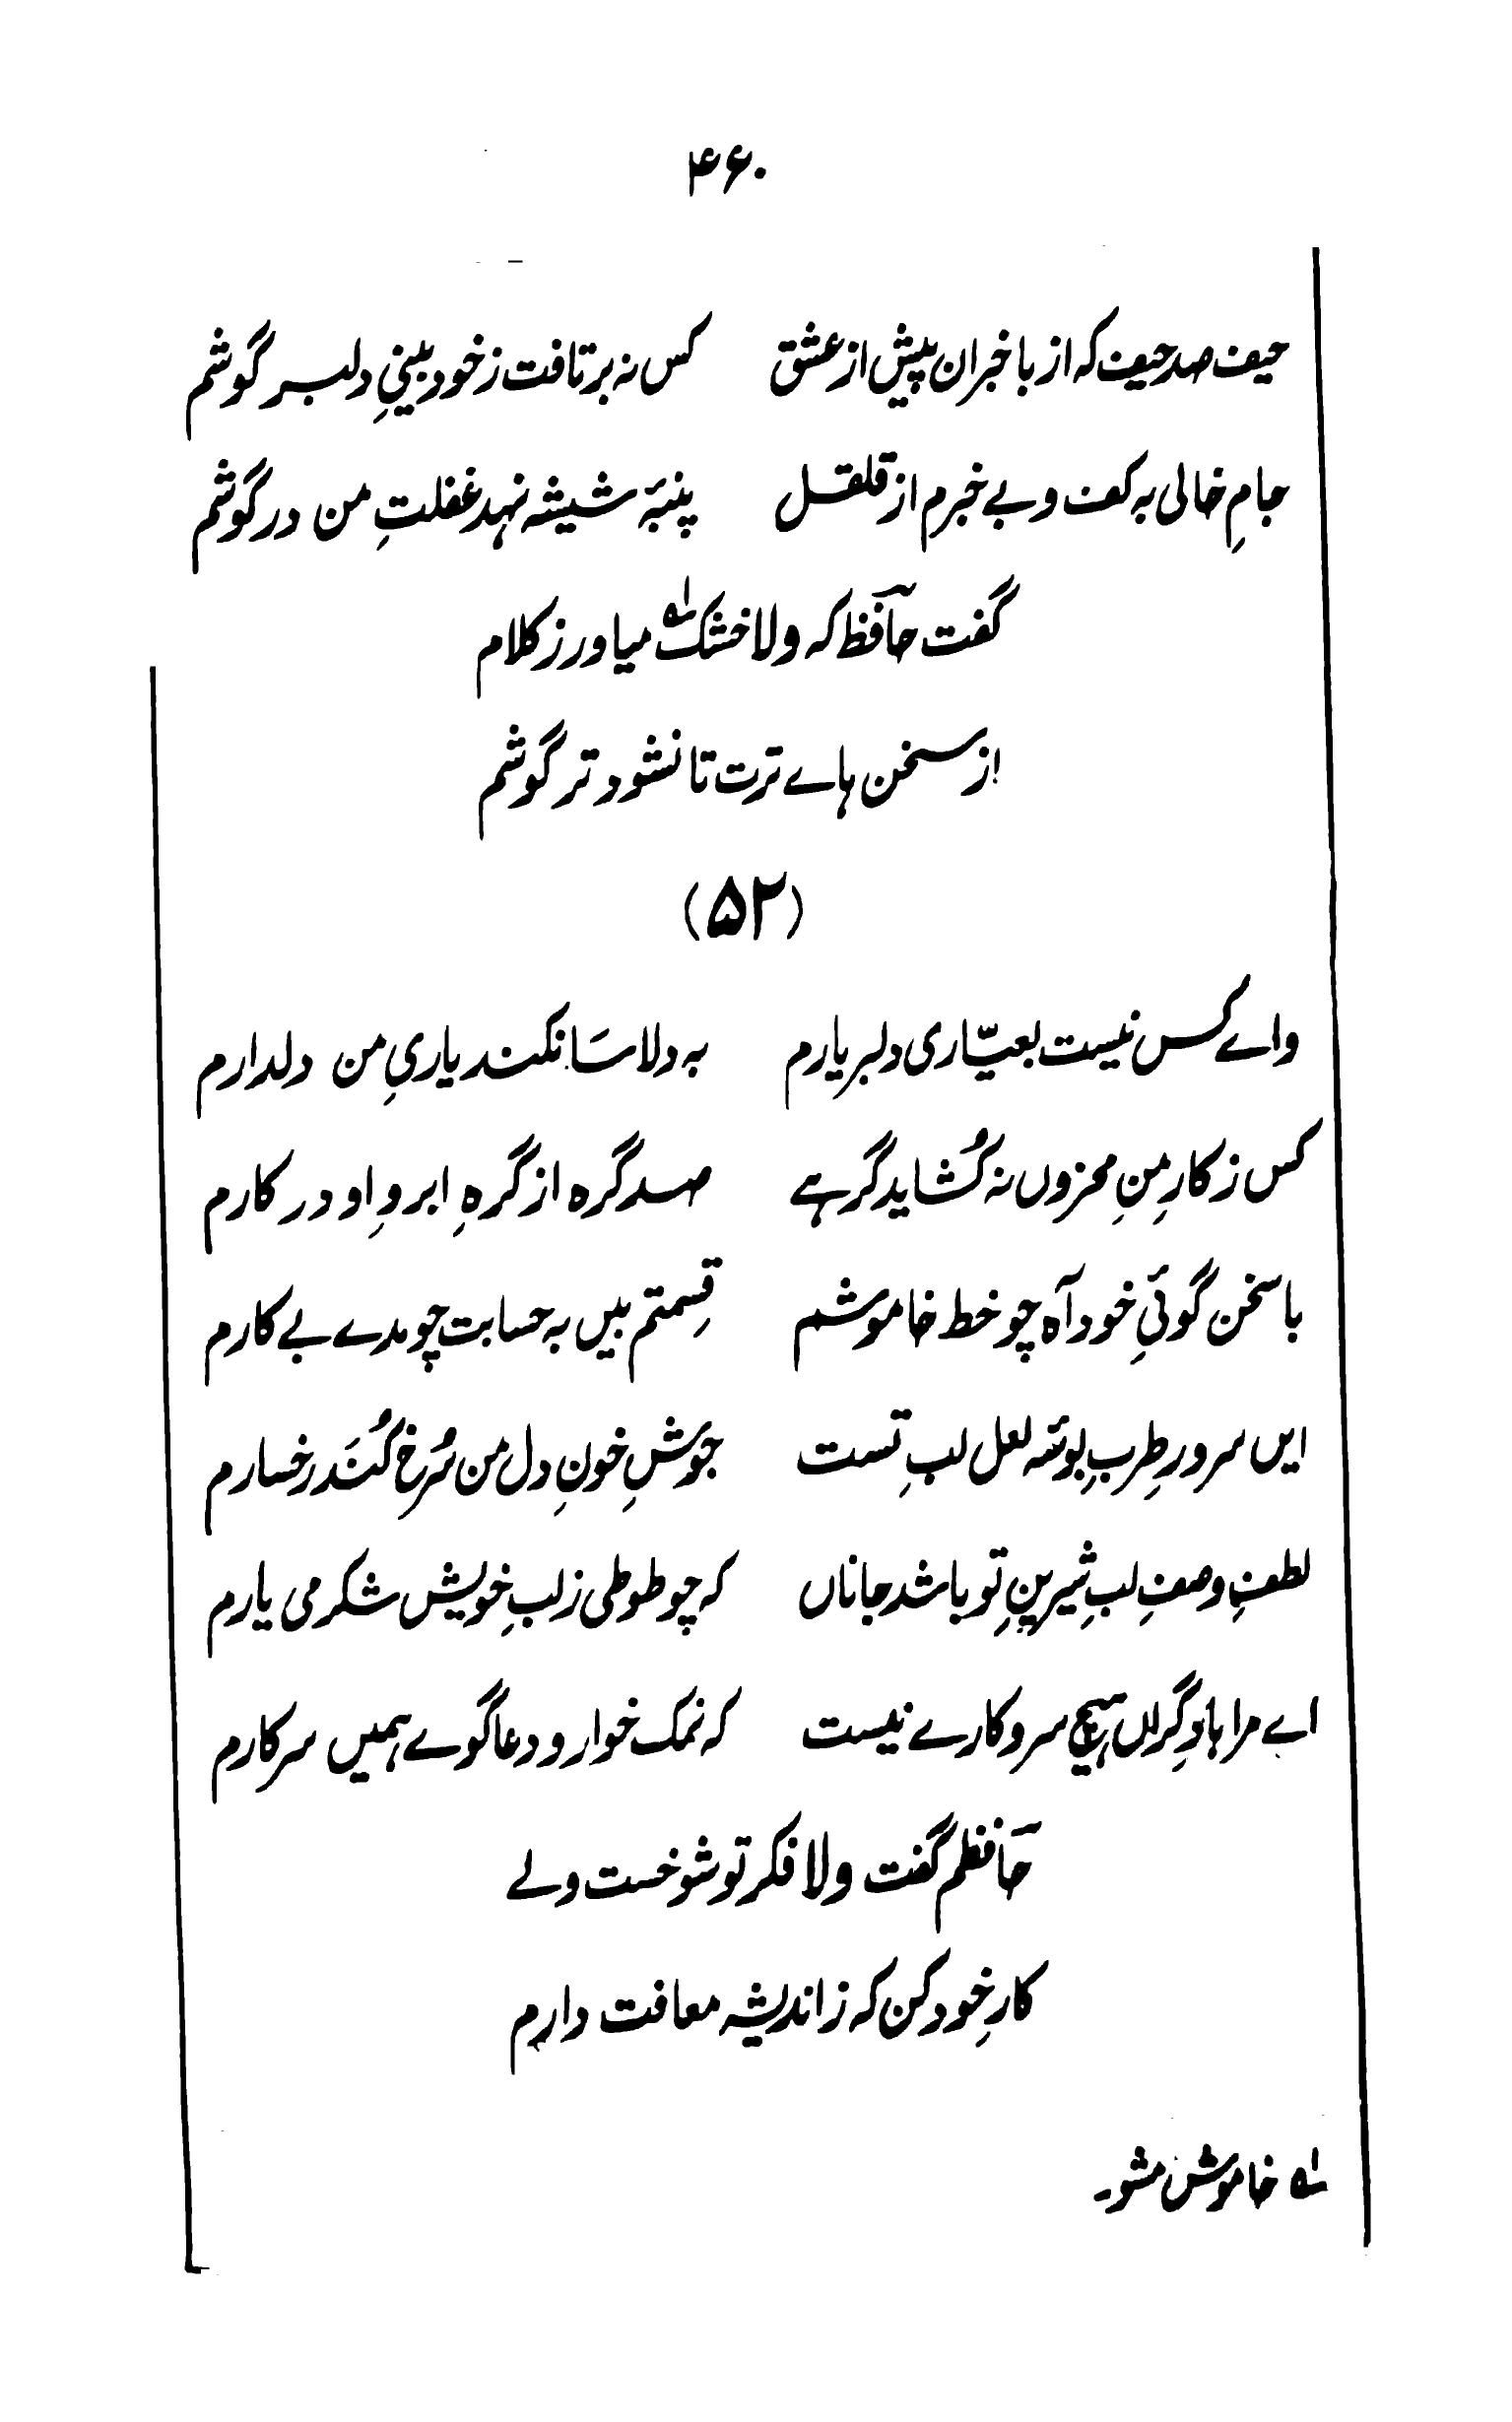 ۴۶۰
حیف صد حیف کہ از با خبران پیش از عشق کس نہ برتافت ز خود بینیِ دلبر گوشم
جامِ خالی بہ کف و بے خبرم از قلقل پنبۂ شیشہ نہد غفلتِ من در گوشم
گفت حافظ کہ ولا خشک ؎۱ میاور ز کلام
از سخن ہاے ترت تا نشود تر گوشم
(۵۲)
واے کس نیست بعیّاری دلبر یارم بہ دلاسَا نکند یاریِ من دلدارم
کس ز کارِ منِ محزوں نہ کُشاید گرہے صد گرہ از گرہِ ابروِ او در کارم
با سخن گوئیِ خود آہ چو خط خاموشم قِسمتم بیں بہ حسابت چو مدے بے کارم
ایں سرور طربِ بوسۂ لعل لبِ تست جوشِ خونِ دل من سُرخ کُنَد رخسارم
لطفِ وصفِ لبِ شیرینِ تو باشد جاناں کہ چو طوطی ز لبِ خویش شکر می یارم
اے مرا با دِگراں ہیچ سروکارے نیست کہ نمک خوار و دعا گوے ہمیں سرکارم
حافظم گفت ولا فکر تو شوخست ولے
کارِ خود کن کہ ز اندیشہ معافت دارم
؎۱ خاموش مشو۔